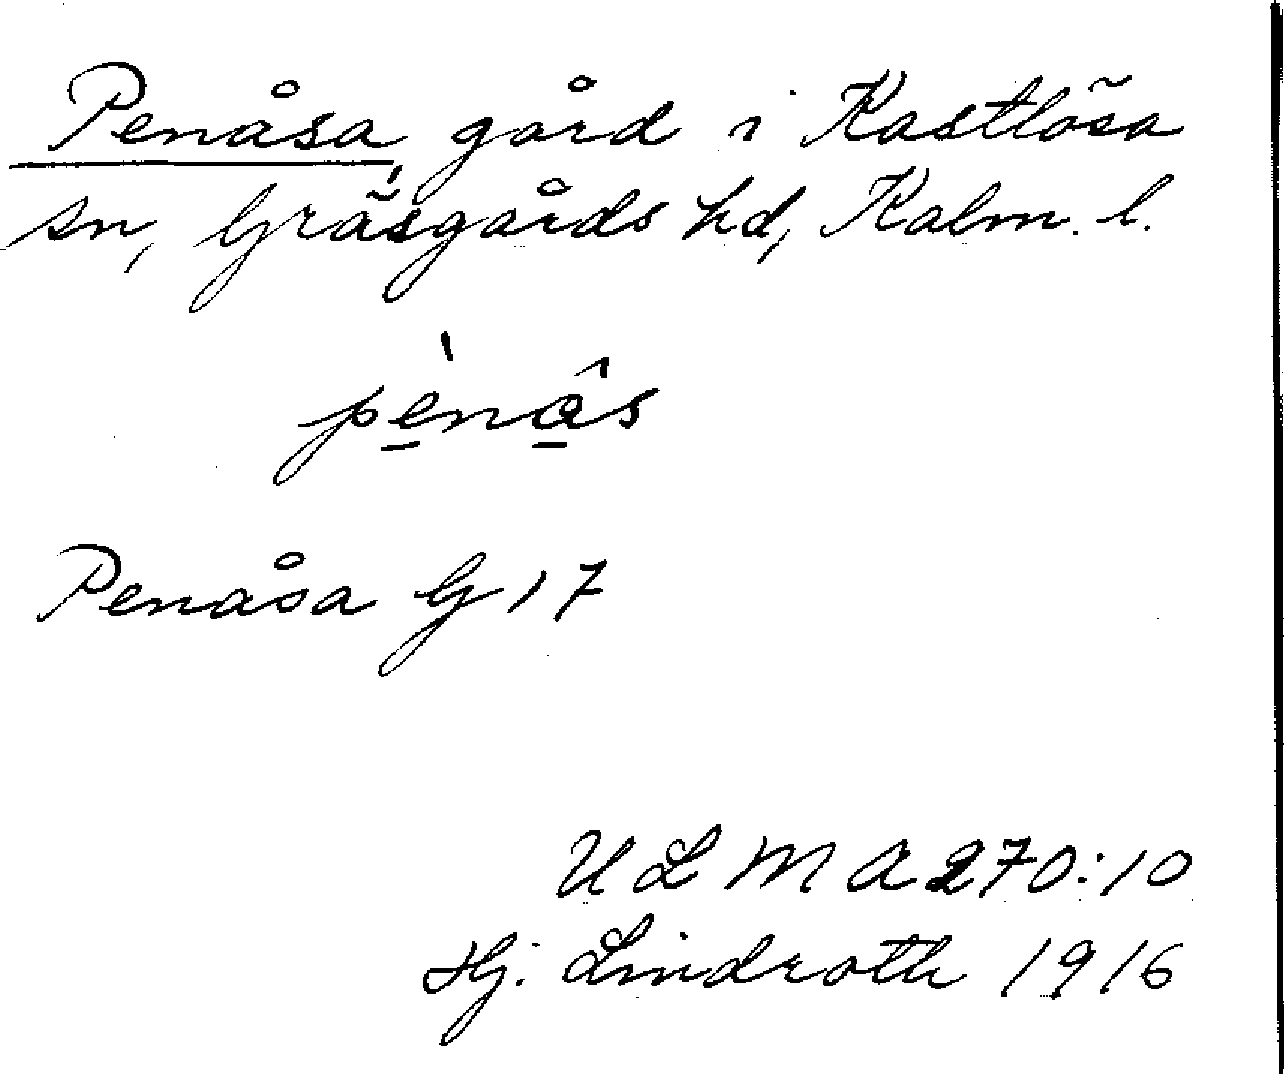 Penåsa, gård i Kastlösa
sn, Gräsgårds hd, Kalm. l.
pènâs
Penåsa G 17
ULMA 270:10
Hj. Lindroth 1916